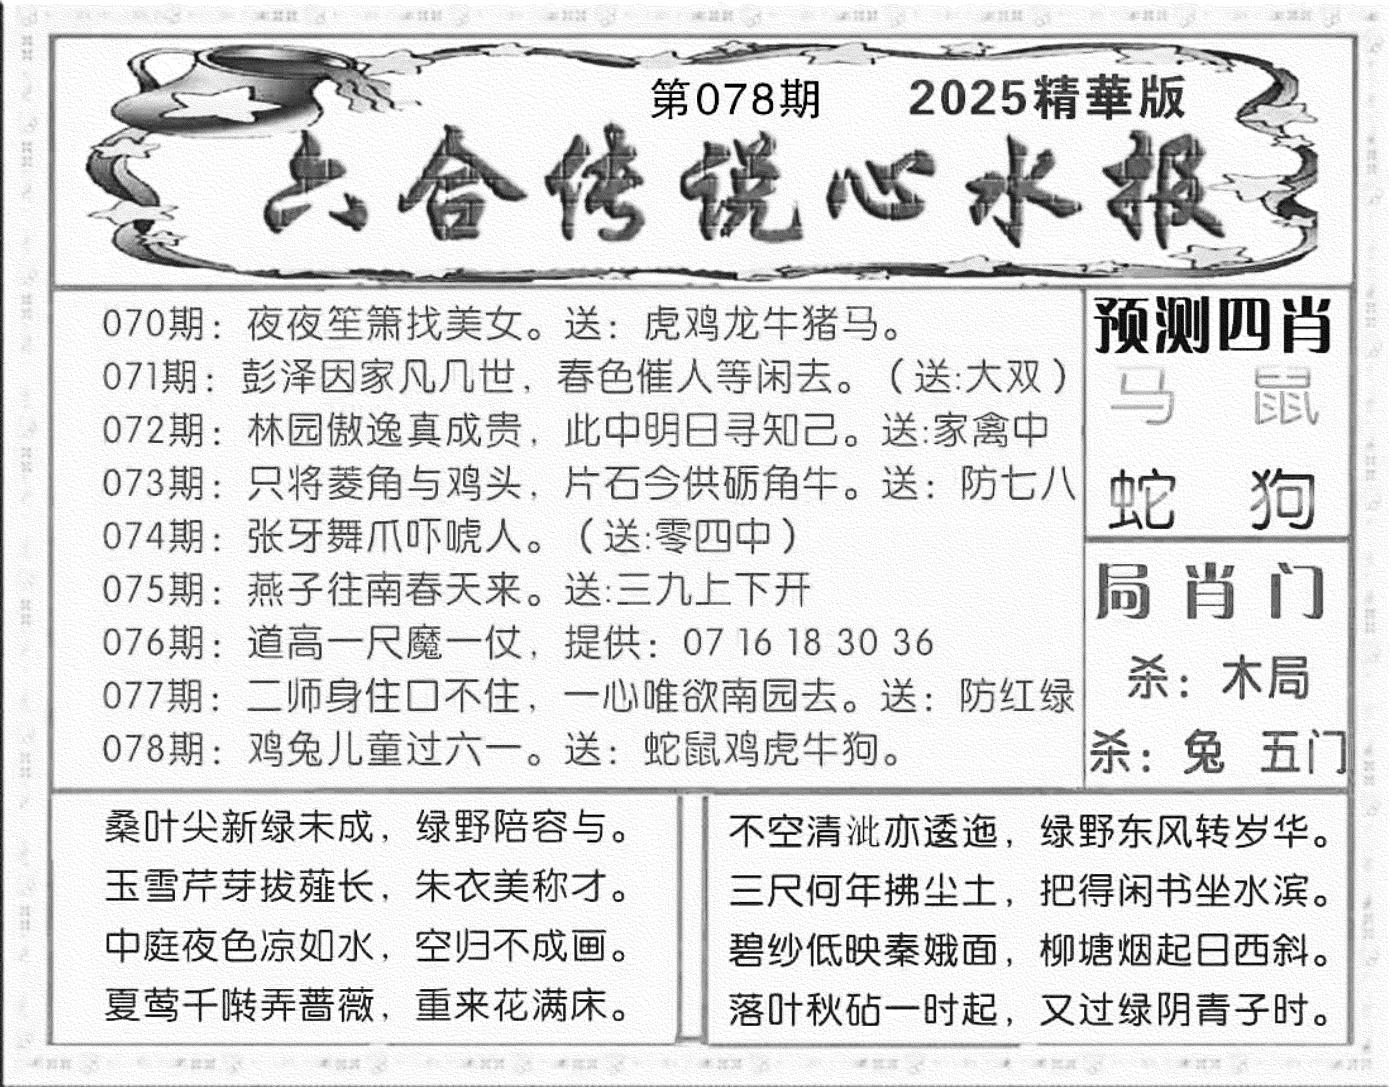 第078期 2025精華版
六合传说心水报
070期：夜夜笙箫找美女。送：虎鸡龙牛猪马。
071期：彭泽因家凡几世，春色催人等闲去。（送:大双）
072期：林园傲逸真成贵，此中明日寻知己。送:家禽中
073期：只将菱角与鸡头，片石今供砺角牛。送：防七八
074期：张牙舞爪吓唬人。（送:零四中）
075期：燕子往南春天来。送:三九上下开
076期：道高一尺魔一仗，提供：07 16 18 30 36
077期：二师身住口不住，一心唯欲南园去。送：防红绿
078期：鸡兔儿童过六一。送：蛇鼠鸡虎牛狗。
预测四肖
马 鼠
蛇 狗
局肖门
杀：木局
杀：兔 五门
桑叶尖新绿未成，绿野陪容与。
玉雪芹芽拔薤长，朱衣美称才。
中庭夜色凉如水，空归不成画。
夏莺千啭弄蔷薇，重来花满床。
不空清泚亦逶迤，绿野东风转岁华。
三尺何年拂尘土，把得闲书坐水滨。
碧纱低映秦娥面，柳塘烟起日西斜。
落叶秋砧一时起，又过绿阴青子时。